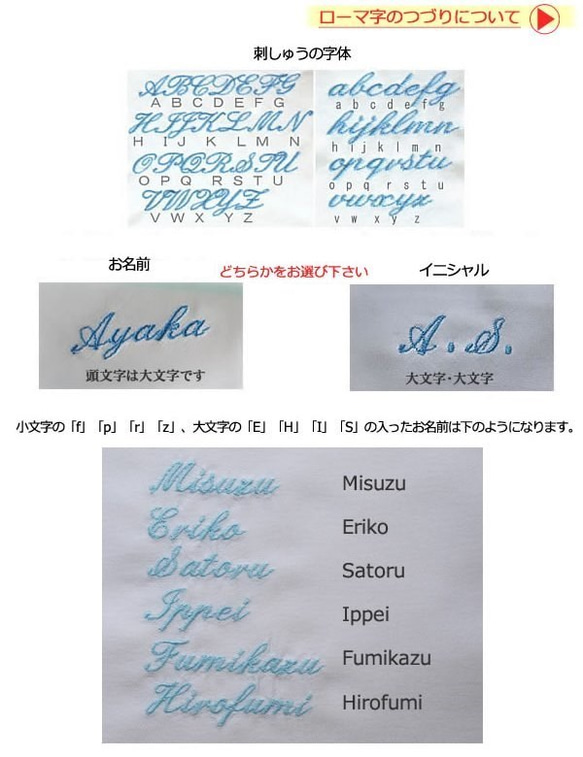 ローマ字のつづりについて
刺しゅうの字体
ABCDEFG
A B C D E F G
HIJKLMN
H I J K L M N
OPQRSTU
O P Q R S T U
VWXYZ
V W X Y Z
abcdefg
a b c d e f g
hijklmn
h i j k l m n
opqrstu
o p q r s t u
vwxyz
v w x y z
お名前
どちらかをお選び下さい
イニシャル
Ayaka
頭文字は大文字です
A.S.
大文字・大文字
小文字の「f」「p」「r」「z」、大文字の「E」「H」「I」「S」の入ったお名前は下のようになります。
Misuzu Misuzu
Eriko Eriko
Satoru Satoru
Ippei Ippei
Fumikazu Fumikazu
Hirofumi Hirofumi